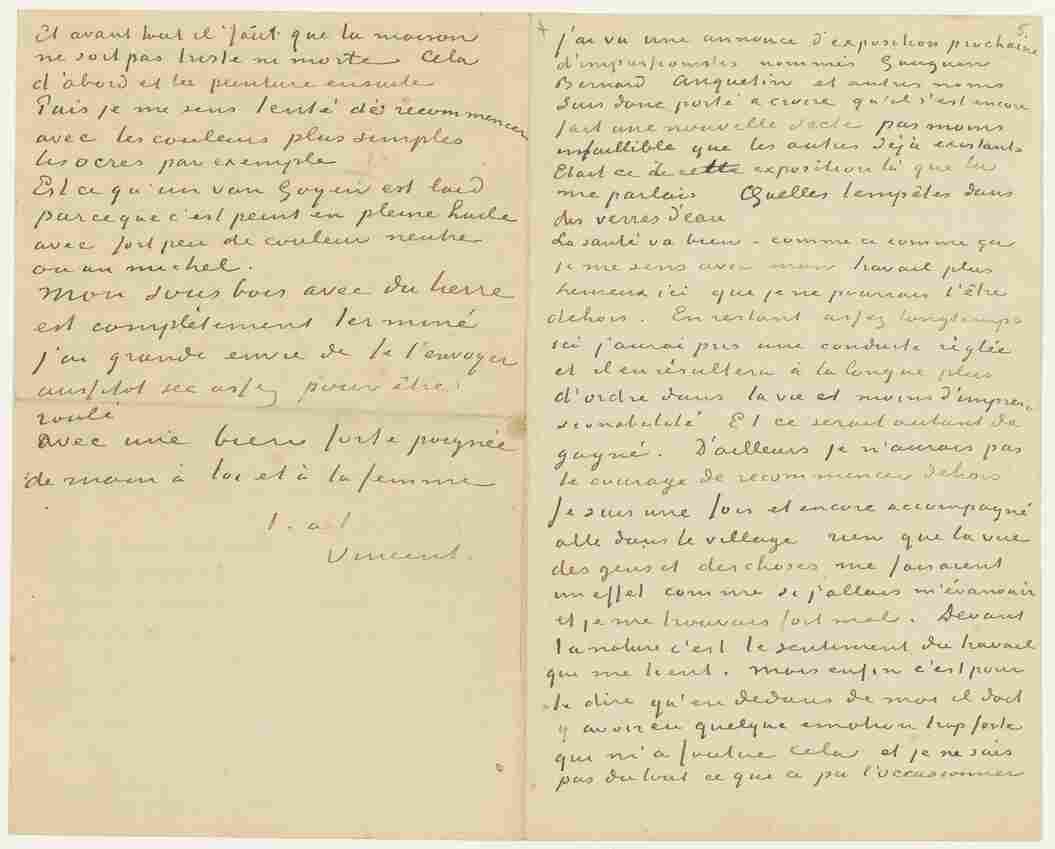 Et avant tout il faut que la maison
ne soit pas triste ni morte Cela
d'abord et la peinture ensuite
Puis je me sens tenté de recommencer
avec les couleurs plus simples
les ocres par exemple
Est ce qu'un van Goyen est laid
parceque c'est peint en pleine huile
avec fort peu de couleur neutre
ou un michel.
mon sous bois avec du lierre
est complètement terminé
j'ai grande envie de te l'envoyer
aussitot sec assez pour être
roulé
avec une bien forte poignée
de main à toi et à ta femme
t. à t
Vincent.
5.
j'ai vu une annonce d'exposition prochaine
d'impressionistes nommés Gauguin
Bernard Anquetin et autres noms
Suis donc porté a croire qu'il s'est encore
fait une nouvelle secte pas moins
infaillible que les autres déjà existants
Etait ce de cette exposition là que tu
me parlais Quelles tempêtes dans
des verres d'eau
La santé va bien – comme ci comme ça
je me sens avec mon travail plus
heureux ici que je ne pourrais l'être
dehors. En restant assez longtemps
ici j'aurai pris une conduite réglée
et il en résultera à la longue plus
d'ordre dans la vie et moins d'impres-
sionabilité Et ce serait autant de
gagné. D'ailleurs je n'aurais pas
le courage de recommencer dehors
Je suis une fois et encore accompagné
allé dans le village rien que la vue
des gens et des choses me faisaient
un effet comme si j'allais m'évanouir
et je me trouvais fort mal. Devant
la nature c'est le sentiment du travail
qui me tient. Mais enfin c'est pour
te dire qu'en dedans de moi il doit
y avoir eu quelque emotion trop forte
qui m'a foutue cela et je ne sais
pas du tout ce que a pu l'occasionner